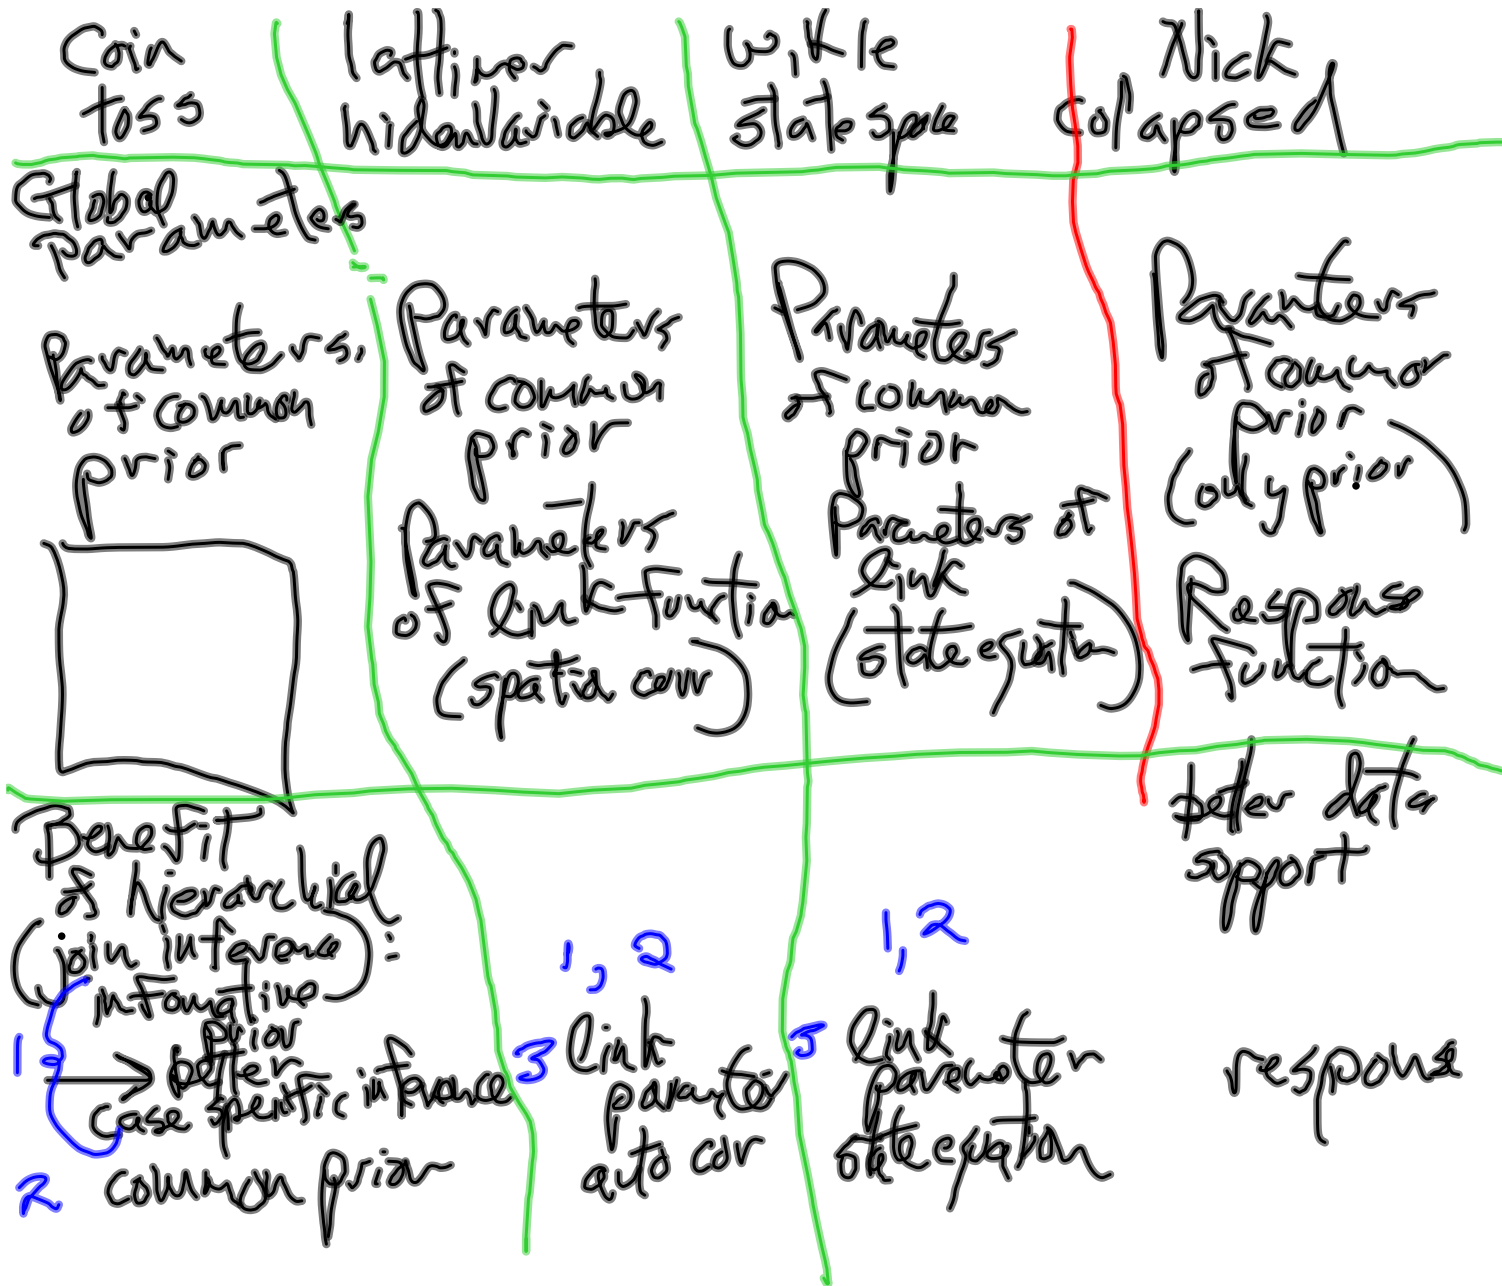 Coin
toss
lattimer
hidenVariable
wikle
state space
Nick
Colapsed
Global
parameters
Parameters.
of common
prior
Parameters
of common
prior
Parameters
of link function
(spatial corr)
Parameters
of common
prior
Parameters of
link
(state equation)
Paramters
of common
prior
(only prior)
Response
function
Benefit
of hierarchical
(join inference):
infomative
prior
1 → better
case specific inference
2 common prior
1, 2
3 link
paramter
auto cor
1, 2
3 link
parameter
state equation
better data
support
response